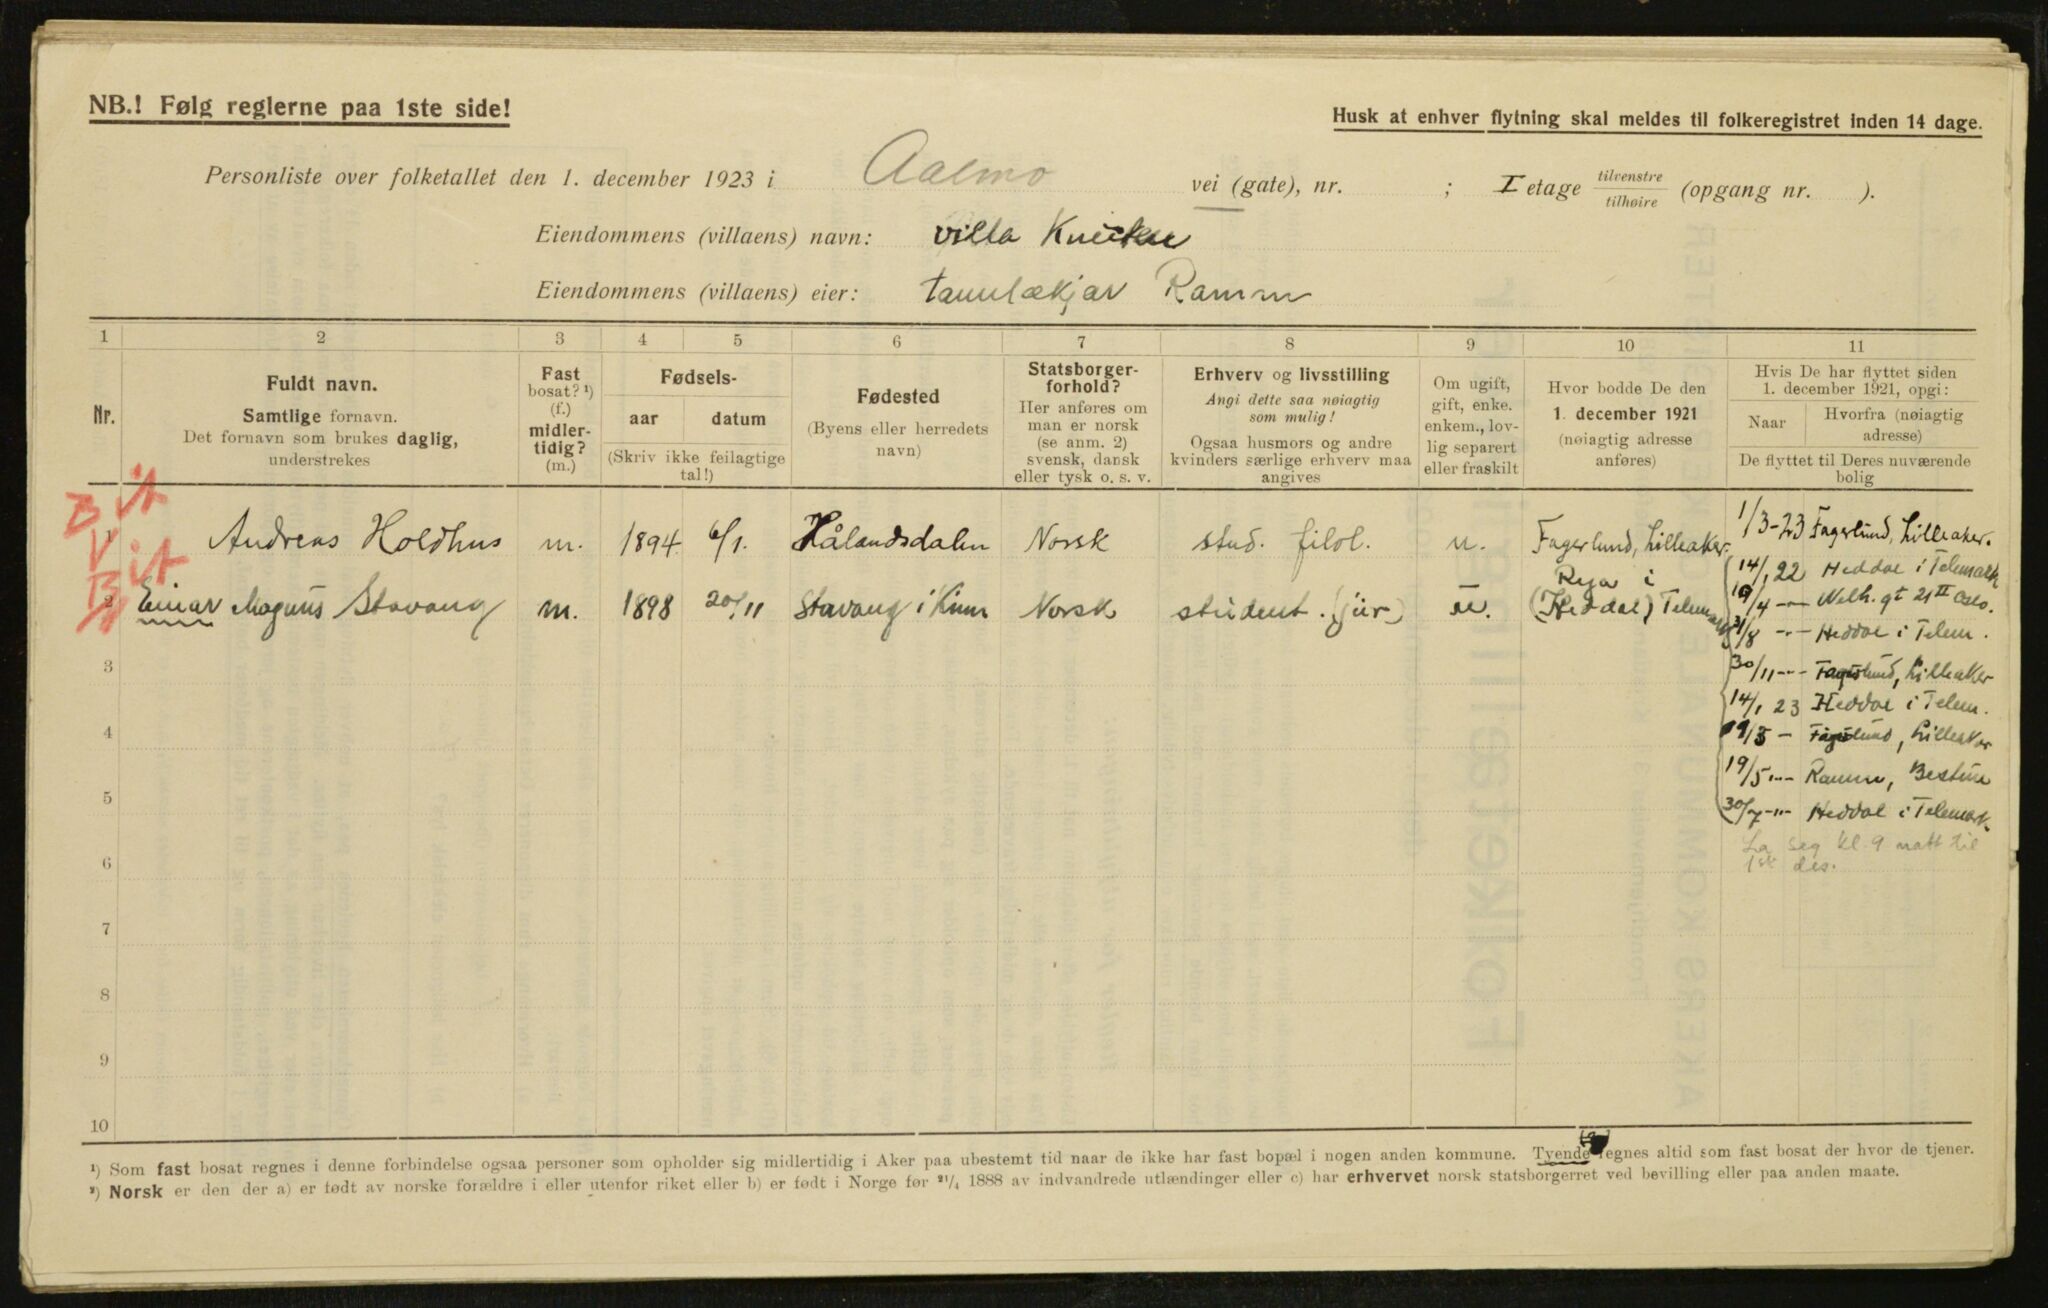 NB.! Følg reglerne paa 1ste side!
Husk at enhver flytning skal meldes til folkeregistret inden 14 dage.
Personliste over folketallet den 1. december 1923 i Aalmo vei (gate), nr. ; I etage tilvenstre tilhøire (opgang nr. ).
Eiendommens (villaens) navn: Villa
Eiendommens (villaens) eier: tannlækjar Ramm
1 2 3 4 5 6 7 8 9 10 11
Nr.
Fuldt navn.
Samtlige fornavn.
Det fornavn som brukes daglig,
understrekes
Fast
bosat? ¹)
(f.)
midler-
tidig?
(m.)
Fødsels-
aar datum
(Skriv ikke feilagtige
tal!)
Fødested
(Byens eller herredets
navn)
Statsborger-
forhold?
Her anføres om
man er norsk
(se anm. 2)
svensk, dansk
eller tysk o. s. v.
Erhverv og livsstilling
Angi dette saa nøiagtig
som mulig!
Ogsaa husmors og andre
kvinders særlige erhverv maa
angives
Om ugift,
gift, enke.
enkem., lov-
lig separert
eller fraskilt
Hvor bodde De den
1. december 1921
(nøiagtig adresse
anføres)
Hvis De har flyttet siden
1. december 1921, opgi:
Naar
Hvorfra (nøiagtig
adresse)
De flyttet til Deres nuværende
bolig
1 Andreas Holdhus m. 1894 6/1. Hålandsdalen Norsk stud. filol. u. Fagerlund, Lilleaker. 1/3-23 Fagerlund, Lilleaker.
2 Einar Magnus Stavang m. 1898 20/11 Stavang i Kinn Norsk student. (jur) u. Rya i (Heddal) Telemark
14/1 22 Heddal i Telemark
/4 -"- Welh. gt 21 II Oslo.
31/8 -"- Heddal i Telem.
30/11 -"- Fagerlund, Lilleaker
14/1 23 Heddal i Telem.
/3 - Fagerlund, Lilleaker
19/5 -"- Ramm, Bestun
30/7 -"- Heddal i Telemark.
seg kl. 9 natt til
1ste des.
3
4
5
6
7
8
9
10
¹) Som fast bosat regnes i denne forbindelse ogsaa personer som opholder sig midlertidig i Aker paa ubestemt tid naar de ikke har fast bopæl i nogen anden kommune. Tyende regnes altid som fast bosat der hvor de tjener.
²) Norsk er den der a) er født av norske forældre i eller utenfor riket eller b) er født i Norge før 21/4 1888 av indvandrede utlændinger eller c) har erhvervet norsk statsborgerret ved bevilling eller paa anden maate.